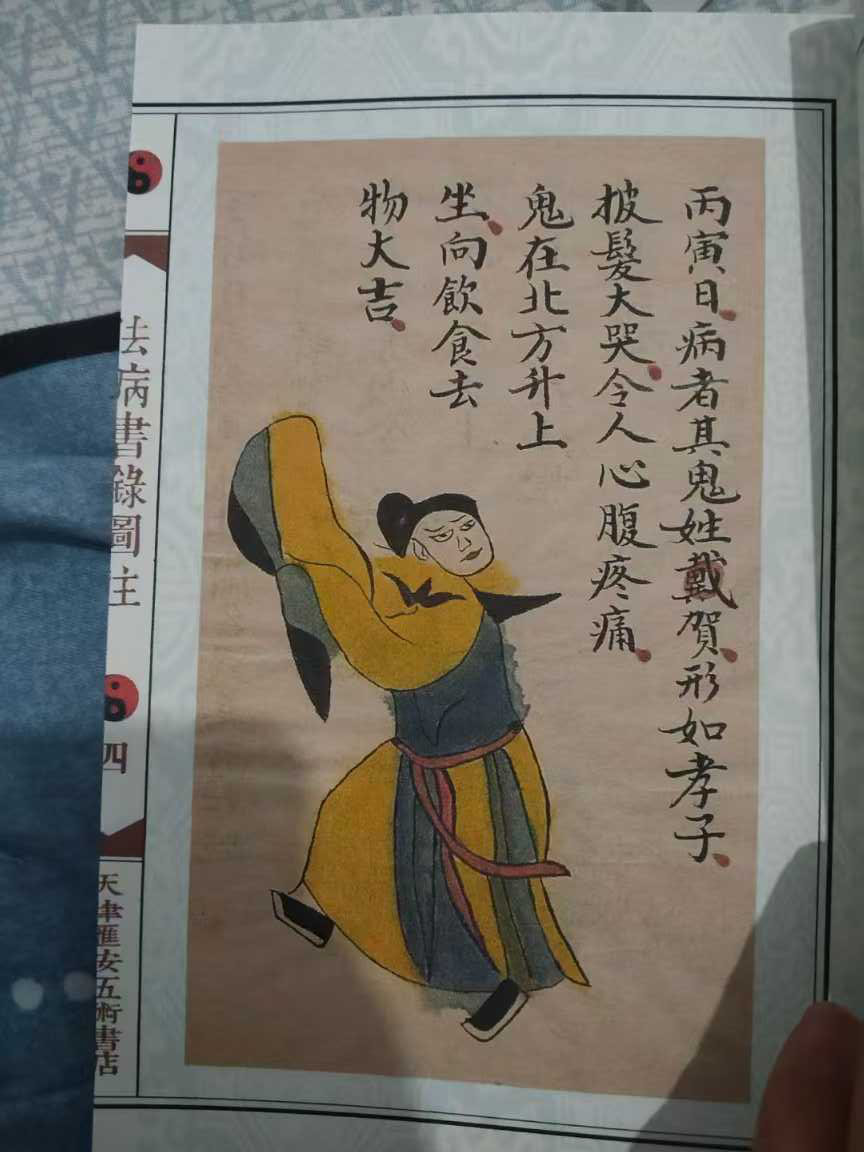 丙寅日病者其鬼姓戴賀形如孝子
披髮大哭令人心腹疼痛
鬼在北方升上
坐向飲食去
物大吉
法病書錄圖注
四
天津匯安五術書店